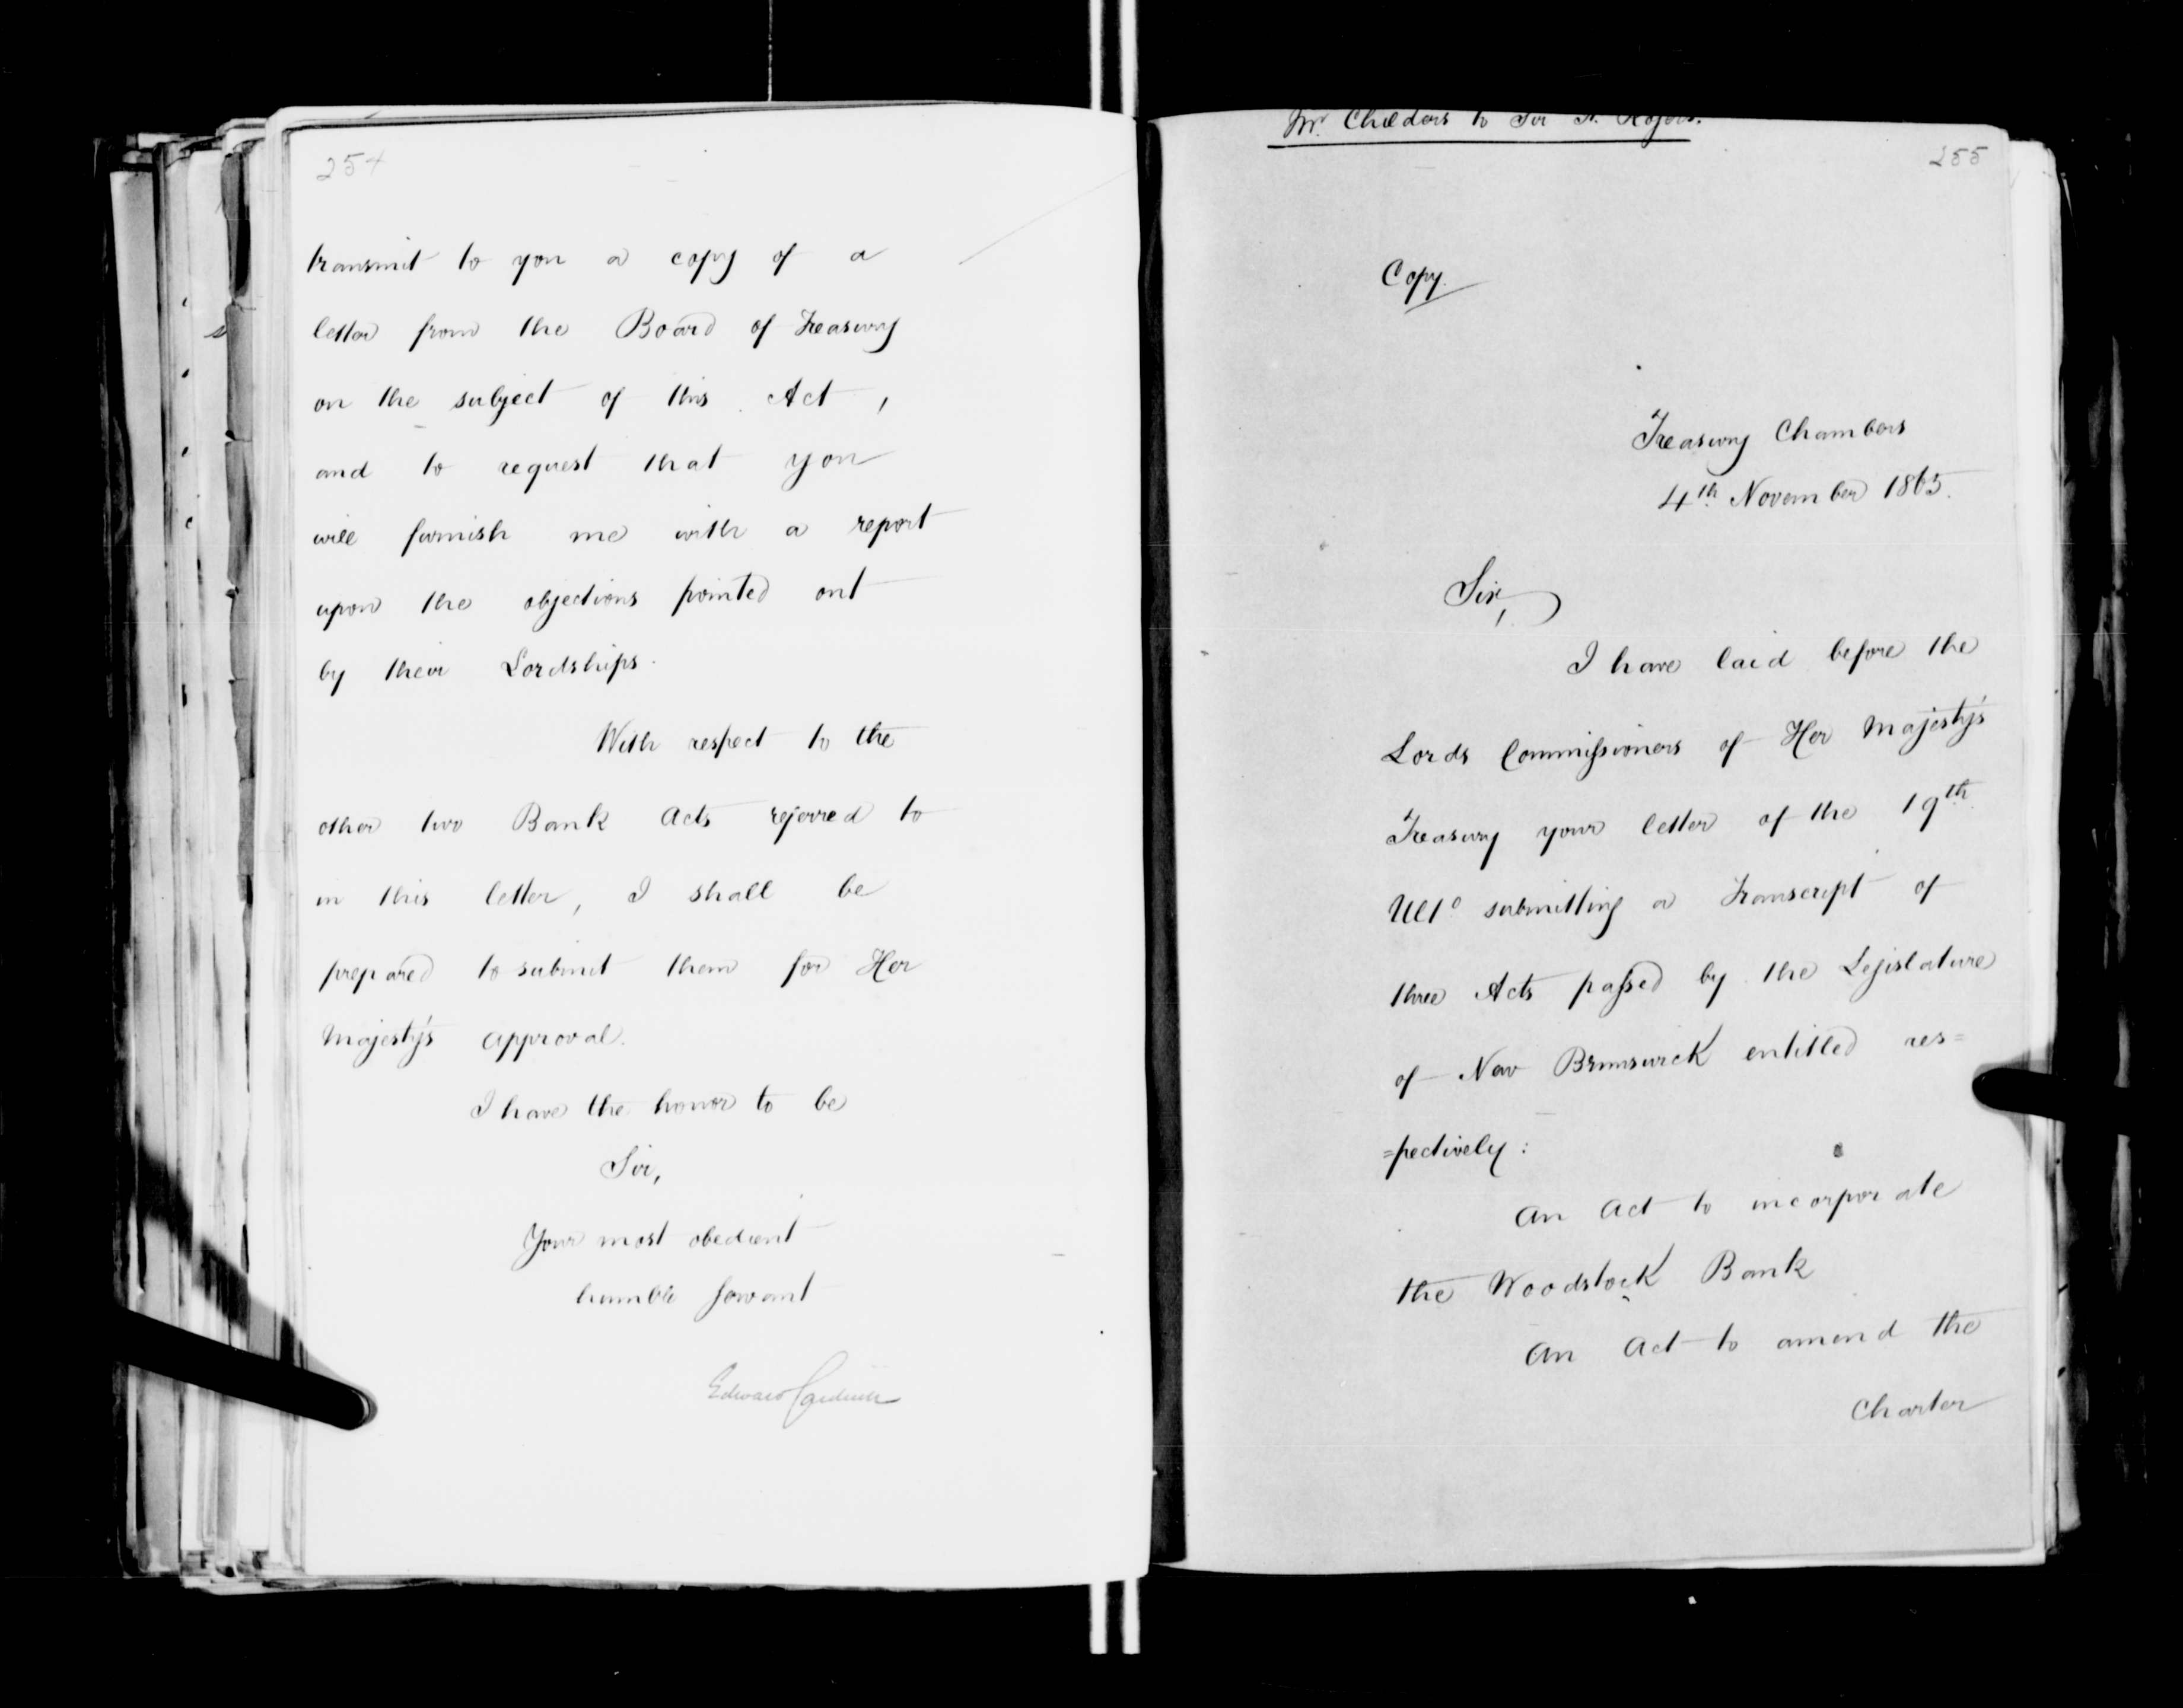 254
transmit to you a copy of a
letter from the Board of Treasury
on the subject of this Act,
and to request that you
will furnish me with a report
upon the objections pointed out
by their Lordships.
With respect to the
other two Bank Acts referred to
in this letter, I shall be
prepared to submit them for Her
Majesty's approval.
I have the honor to be
Sir,
Your most obedient
humble Servant
Edward Cardwell
Mr. Childers to Sir F. Rogers.
255
Copy.
Treasury Chambers
4th November 1865.
Sir,
I have laid before the
Lords Commissioners of Her Majesty's
Treasury your letter of the 19th
Ulto submitting a Transcript of
three Acts passed by the Legislature
of New Brunswick entitled res=
=pectively:
An Act to incorporate
the Woodstock Bank
An Act to amend the
Charter